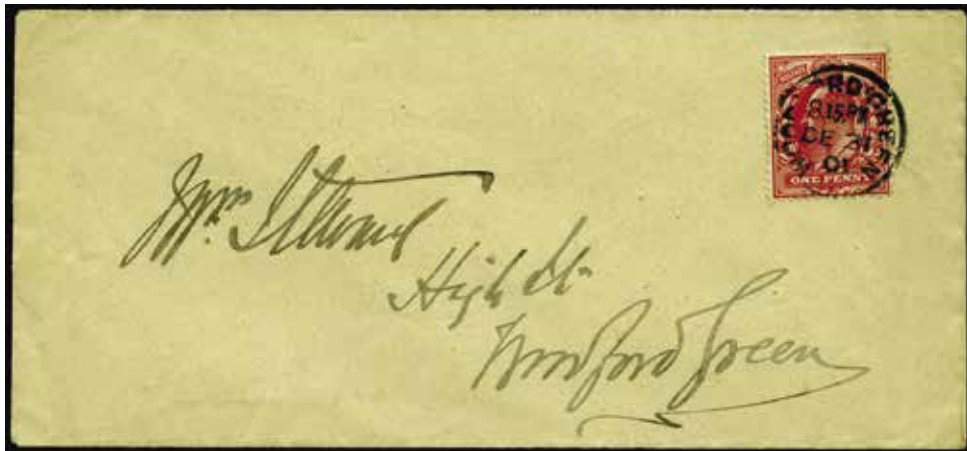 WOODFORD GREEN
8.15 PM
DE 31
01
ONE PENNY
Mrs.
High St.
Woodford Green